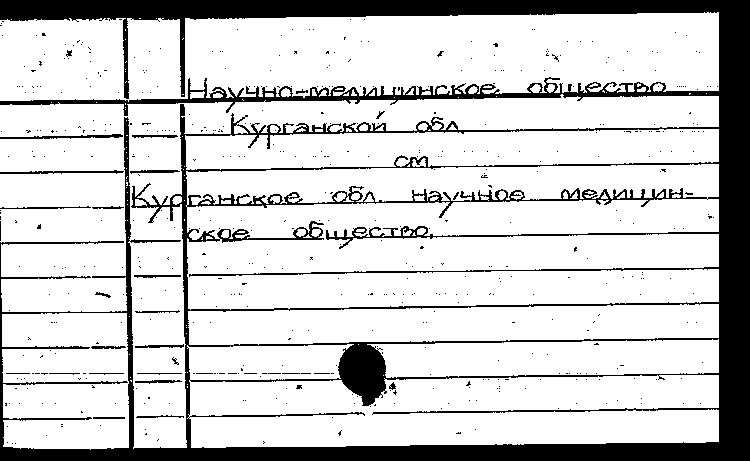 Научно-медицинское общество
Курганской обл.
см.
Курганское обл. научное медицин-
ское общество.